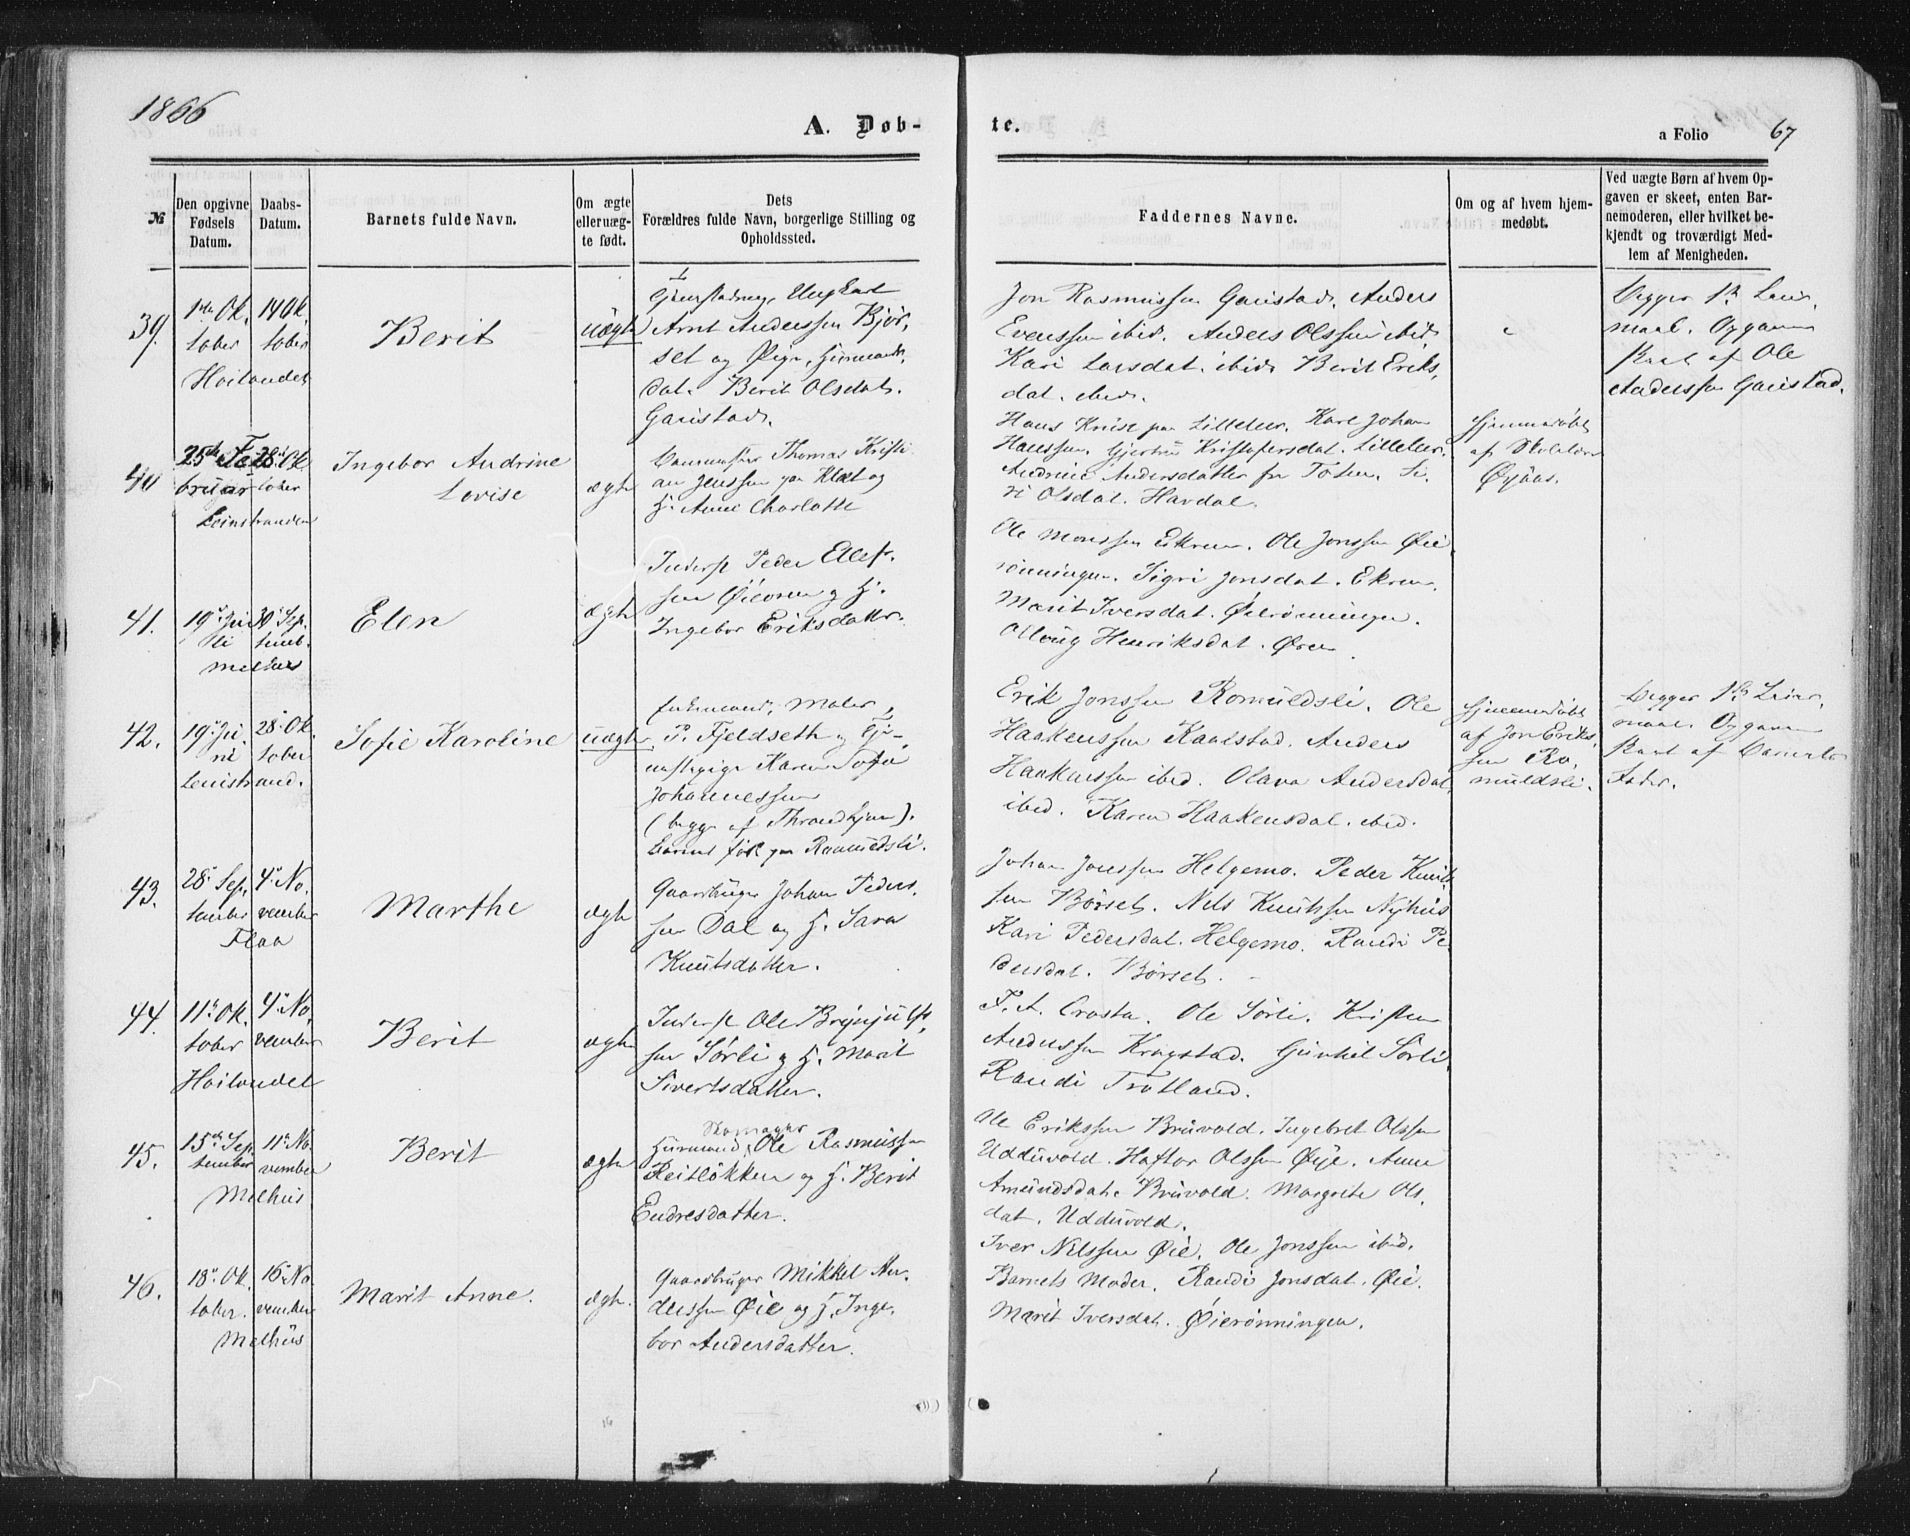 1866
A. Døb-
te.
a Folio 67
№
Den opgivne
Fødsels
Datum.
Daabs-
Datum.
Barnets fulde Navn.
Om ægte
elleruæg-
te født.
Dets
Forældres fulde Navn, borgerlige Stilling og
Opholdssted.
Faddernes Navne.
Om og af hvem hjem-
medøbt.
Ved uægte Børn af hvem Op-
gaven er skeet, enten Bar-
nemoderen, eller hvilket be-
kjendt og troværdigt Med-
lem af Menigheden.
39.
1ste Ok.
tober
Hoilandet
14 Ok.
tober
Berit
uægte
Ungkarl
Arnt Anderssen Bjør,
set og Pige,
dat. Berit Olsdat.
Gaustad.
Jon Rasmussen Gaustad. Anders
Evenssen ibid. Anders Olssen ibid.
Kari Larsdat. ibid. Berit Eriks,
dat. ibid.
Begges 1ste Leier,
maal. Opgaven
skeet af Ole
Anderssen Gaustad.
40
25de Fe
bruar
Leinstranden
28de Ok
tober
Ingebor Andrine
Lovise
ægte
Thomas Kristi
an Jenssen paa Klæt og
H. Anne Charlotte
Hans Krise paa Lilleler. Karl Johan
Hanssen. Gjertru Kristofersdat. Lilleler.
Andrine Andersdatter fra Toten. Si
ri Olsdat. Havdal.
Hjemmedøbt
af Skolelærer
Øyaas.
41.
19de Ju
li
Melhus
30 Sep.
temb.
Elen
ægte
Inderst Peder Ellef.
sen Øieoren og H.
Ingebor Eriksdatter.
Ole Monssen Ekren. Ole Jonssen Øie
rönningen. Sigri Jonsdat. Ekren.
Marit Iversdat. Øierönningen.
Ollaug Henriksdat. Øren.
42.
19de Ju
ni
Leinstrand.
28de Ok.
tober
Sofie Karoline
uægte
Enkemand, Maler,
P. Fjeldseth og Tje-
nestepige Karen Sofie
Johannessen
(begge af Throndhjem).
Barnet født paa Romuldsli.
Erik Jonssen Romuldsli. Ole
Haakenssen Kaalstad. Anders
Haakenssen ibid. Olava Andersdat.
ibid. Karen Haakensdat. ibid.
Hjemmedøbt
af Jon Eriks,
sen Ro,
muldsli.
Begges 1ste Leier,
maal. Opgaven
skeet af Barnets
Fader.
43.
28de Sep,
tember
Flaa
4de No,
vember
Marthe
ægte
Gaardbruger Johan Peders.
sen Dal og H. Sara
Knutsdatter.
Johan Jonssen Helgemo. Peder Knut
sen Börset. Nels Knutssen Nyhus
Kari Pedersdat. Helgemo. Randi Pe
dersdat. Börset.
44.
11te Ok.
tober
Hoilandet
4de No,
vember
Berit
ægte
Inderst Ole Brynjulfs,
sen Sørli og H. Marit
Sivertsdatter.
F. A. Crosta. Ole Sörli. Kristen
Anderssen Krogstad. Gunhil Sörli.
Randi Trötland.
45.
15de Sep.
tember
Melhus
11te No
vember
Berit
ægte
Skomager
Huusmand, Ole Rasmussen
Reitlökken og H. Berit
Endresdatter.
Ole Erikssen Bruvold. Ingebret Olssen
Udduvold. Haftor Olssen Øye. Anne
Amundsdat. Bruvold. Margrete Ols
dat. Udduvold.
46.
18de Ok.
tober.
Melhus
16de No
vember
Marit Anne.
ægte.
Gaardbruger Mikkel An.
derssen Øie og H. Inge,
bor Andersdatter.
Iver Nelssen Øie. Ole Jonssen ibid.
Barnets Moder. Randi Jonsdat. Øie.
Marit Iversdat. Øierönningen.